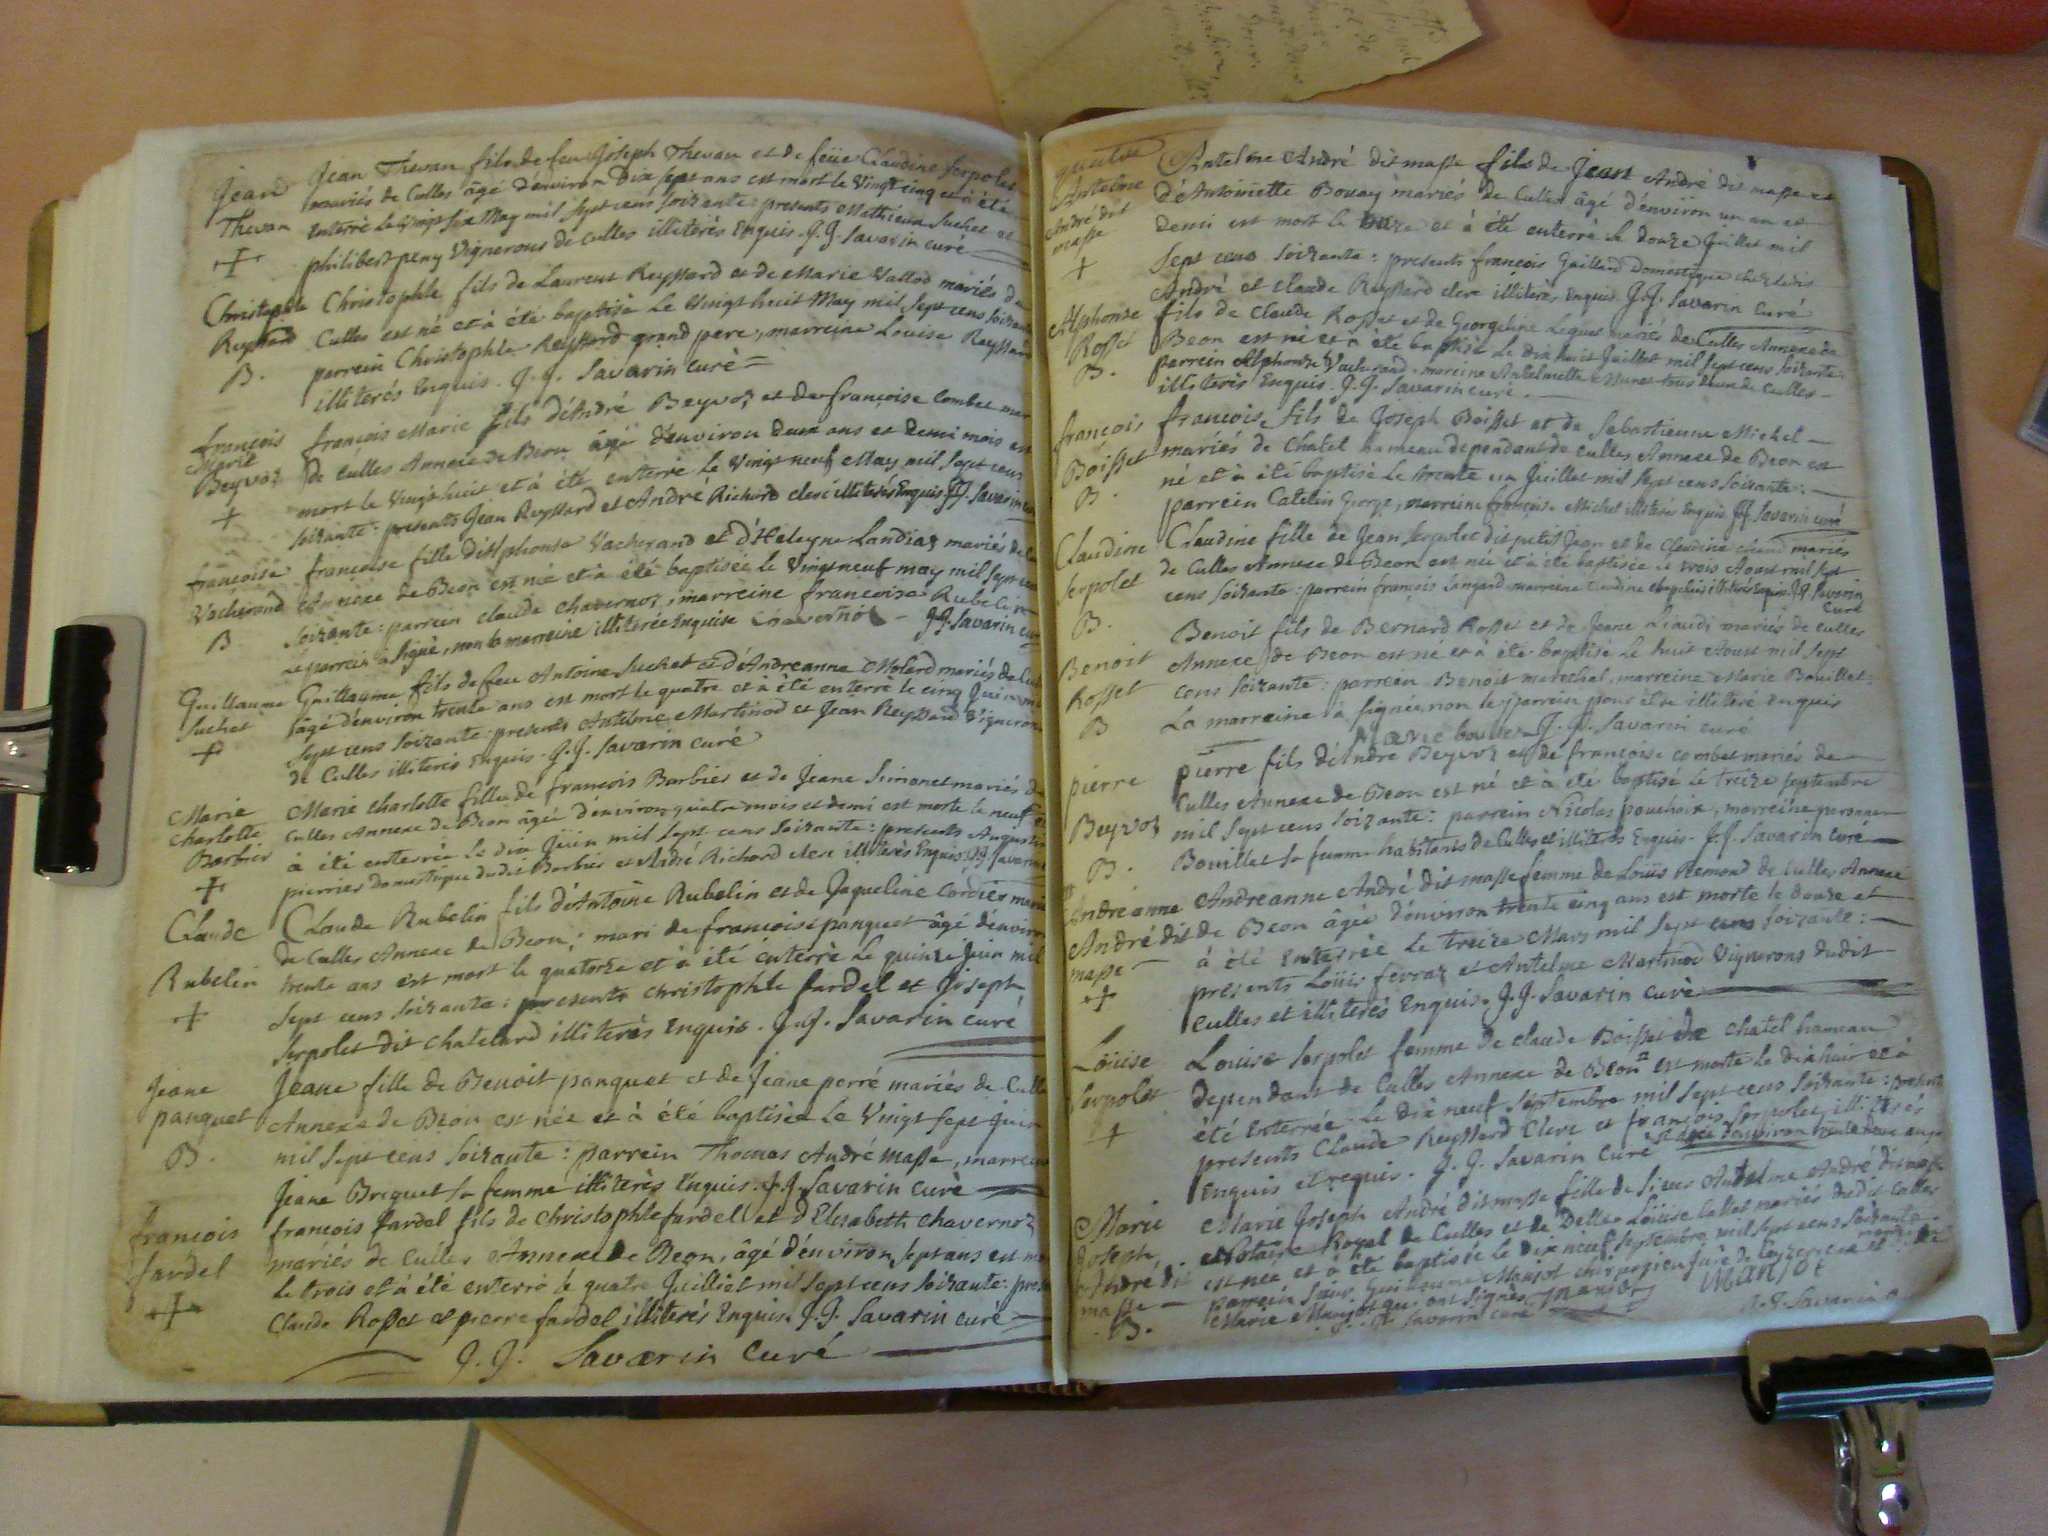 Jean
Thevan
Jean Thevan fils de feu Joseph Thevan et de feüe Claudine Serpolet
mariés de Culles âgé d'environ Dix sept ans est mort le Vingt cinq et à été
enterré le Vingt six May mil sept cens soixante: presents Mathieu Suchet et
philibert peny Vignerons de Culles illiterés Enquis. J. J. Savarin curé
Christophle
Reyssard
B.
Christophle fils de Laurent Reyssard et de Marie Vallod mariés de
Culles est né et à été baptisé Le Vingt huit May mil sept cens soixante
parrein Christophle Reyssard grand pere, marreine Louise Reyssard
illiterés Enquis. J. J. Savarin curé
françois
Marie
Beyvoz
françois Marie fils d'André Beyvoz et de françoise Combet mar
de Culles Annexe de Beon âgé d'environ deux ans et demi mois est
mort le Vingt huit et à été enterré le Vingt neuf May mil sept cens
soixante: presents Jean Reyssard et André Richard clerc illiterés Enquis J. J. Savarin
françoise
Vacherand
B
françoise fille d'Alphonse Vacherand et d'Heleyne Landiaz mariés de
Annexe de Beon est née et à été baptisée le Vingt neuf may mil sept cens
soixante: parrein claude chavernoz, marreine françoise Rubelin
Le parrein à signé, non la marreine illiterée Enquise Chavernoz - J. J. Savarin cur
Guillaume
Suchet
Guillaume fils de feu Antoine Suchet et d'Andreanne Molard mariés de Cul
âgé d'environ trente ans est mort le quatre et à été enterré le cinq Juin mil
sept cens soixante: presents Antelme Martinod et Jean Reyssard Vignerons
de Culles illiterés Enquis. J. J. Savarin curé
Marie
Charlotte
Barbier
Marie Charlotte fille de françois Barbier et de Jeane Simonet mariés de
Culles Annexe de Beon âgée d'environ quatre mois et demi est morte le neuf et
à été enterrée le dix Juin mil sept cens soixante: presents Augustin
pierrier domestique dudit Barbier et André Richard clerc illiterés Enquis. J. J. Savarin
Claude
Rubelin
Claude Rubelin fils d'Antoine Rubelin et de Jaqueline Cordier marié
de Culles Annexe de Beon; mari de françoise panquet âgé d'environ
trente ans est mort le quatorze et à été enterré Le quinze Juin mil
sept cens soixante: presents christophle fardel et Joseph
Serpolet dit chatelard illiterés Enquis. J. J. Savarin curé
Jeane
panquet
B.
Jeane fille de Benoit panquet et de Jeane perré mariés de Culle
Annexe de Beon est née et à été baptisée Le Vingt sept Juin
mil sept cens soixante: parrein Thomas André masse, marrein
Jeane Briquet sa femme illiterés Enquis. J. J. Savarin curé
françois
fardel
françois fardel fils de christophle fardel et d'Elisabeth chavernoz
mariés de Culles Annexe de Beon, âgé d'environ sept ans est mo
le trois et à été enterré le quatre Juilliet mil sept cens soixante: pres
Claude Rosset et pierre fardel illiterés Enquis. J. J. Savarin curé
J. J. Savarin Curé
Antelme
André dit
masse
Antelme André dit masse fils de Jean André dit masse et
d'Antoinette Bovay mariés de Culles âgé d'environ un an et
demi est mort le onze et à été enterré le douze Juillet mil
sept cens soixante: presents françois Guillard Domestique chez
André et claude Reyssard clerc illiterés Enquis. J. J. Savarin Curé
Alphonse
Rosset
B.
fils de Claude Rosset et de Georgeline Lequet mariés de Culles Annexe de
Beon est né et à été baptisé Le dix huit Juillet mil sept cens soixante:
parrein Alphonse Vacherand. marreine Antelmette tous deux de Culles
illiterés Enquis. J. J. Savarin curé.
françois
Boisset
B.
françois, fils de Joseph Boisset et de Sebastienne Michel
mariés de Chatel hameau dependant de Culles Annexe de Beon est
né et à été baptisé Le trente un Juillet mil sept cens soixante:
parrein Catelin George, marreine françoise Michel illiterés Enquis. J. J. Savarin curé
Claudine
Serpolet
B.
Claudine fille de Jean Serpolet dit petit Jean et de Claudine mariés
de Culles Annexe de Beon est née et à été baptisée le trois Aoust mil sept
cens soixante: parrein françois marreine Claudine illiterés Enquis J. J. Savarin
Curé
Benoit
Rosset
B
Benoit fils de Bernard Rosset et de Jeane Liaudi mariés de Culles
Annexe de Beon est né et à été baptisé Le huit Aoust mil sept
cens soixante: parrein Benoit marechal, marreine Marie Bouillet:
La marreine à signée, non le parrein pour être illiteré enquis
Marie boulier J. J. Savarin curé
pierre
Beyvoz
B.
pierre fils d'André Beyvoz et de françoise combet mariés de
Culles Annexe de Beon est né et à été baptisé Le treize septembre
mil sept cens soixante: parrein Nicolas pouchoix, marreine peronne
Bouillet sa femme habitants de Culles et illiterés Enquis. J. J. Savarin curé
Andreanne
André dit
masse
Andreanne André dit masse femme de Loüis Remond de Culles Annexe
de Beon âgée d'environ trente cinq ans est morte le douze et
à été Enterrée Le treize Mars mil sept cens soixante:
presents Loüis fevraz et Antelme Martinod Vignerons dudit
Culles et illiterés Enquis. J. J. Savarin curé
Loüise
Serpolet
Louise Serpolet femme de claude Boisset de chatel hameau
dependant de Culles Annexe de Beon est morte le dix huit et à
été Enterrée le dix neuf septembre mil sept cens soixante: presents
presents Claude Reyssard Clerc et françois Serpolet, illiterés
Enquis et requis. J. J. Savarin Curé âgée d'environ trente deux ans
Marie
Joseph,
André dit
masse
B.
Marie Joseph André dit masse fille de Sieur Antelme André dit masse
Notaire Royal de Culles et de Delle Loüise Callet mariés dudit Culles
est née et à été baptisée le dix neuf septembre mil sept cens soixante
parrein Sieur Guillaume Manjot chirurgien juré de
Marie Manjot qui ont signés Manjot Manjot
J. J. Savarin curé J. J. Savarin